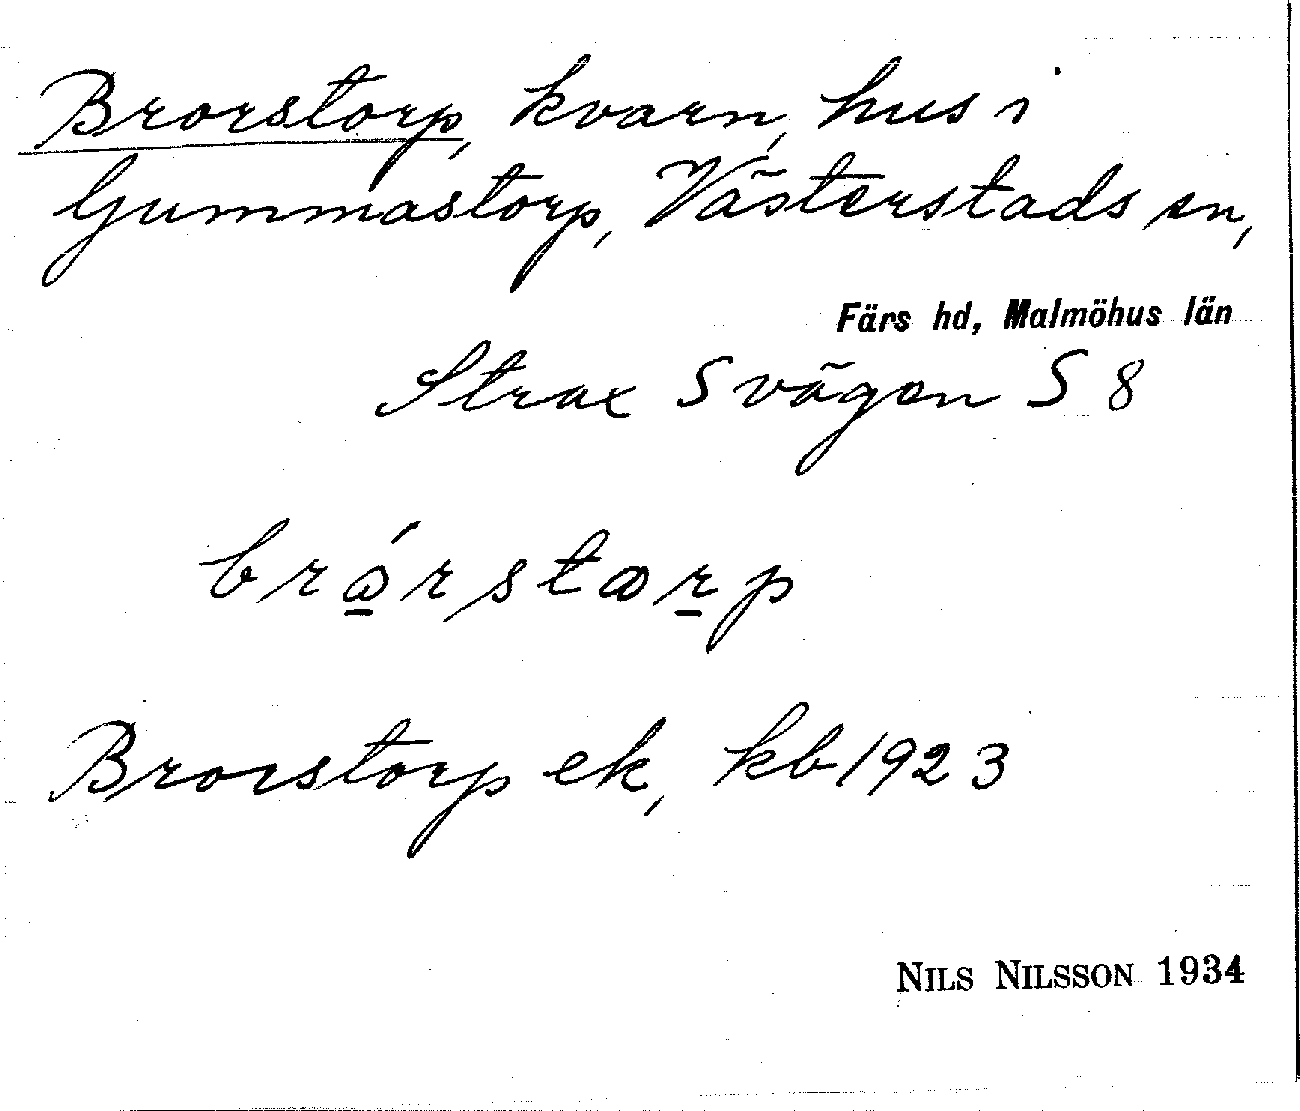 Brorstorp, kvarn, hus i
Gummastorp, Västerstads sn,
Färs hd, Malmöhus län
Strax S vägen S 8
Brorstorp ek, kb 1923
NILS NILSSON 1934